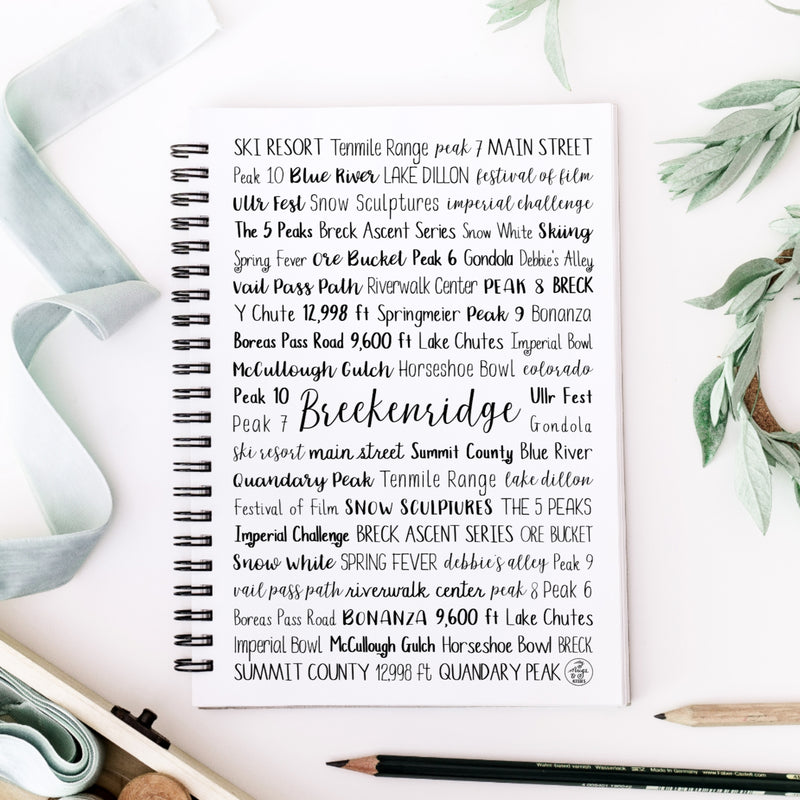 SKI RESORT Tenmile Range peak 7 MAIN STREET
Peak 10 Blue River LAKE DILLON festival of film
Ullr Fest Snow Sculptures imperial challenge
The 5 Peaks Breck Ascent Series Snow White Skiing
Spring Fever Ore Bucket Peak 6 Gondola Debbie's Alley
Vail Pass Path Riverwalk Center PEAK 8 BRECK
Y Chute 12,998 ft Springmeier Peak 9 Bonanza
Boreas Pass Road 9,600 ft Lake Chutes Imperial Bowl
McCullough Gulch Horseshoe Bowl colorado
Peak 10 Ullr Fest
Breckenridge
Peak 7 Gondola
ski resort main street Summit County Blue River
Quandary Peak Tenmile Range lake dillon
Festival of Film SNOW SCULPTURES THE 5 PEAKS
Imperial Challenge BRECK ASCENT SERIES ORE BUCKET
Snow White SPRING FEVER debbie's alley Peak 9
vail pass path riverwalk center peak 8 Peak 6
Boreas Pass Road BONANZA 9,600 ft Lake Chutes
Imperial Bowl McCullough Gulch Horseshoe Bowl BRECK
SUMMIT COUNTY 12,998 ft QUANDARY PEAK
www.Faber-Castell.com